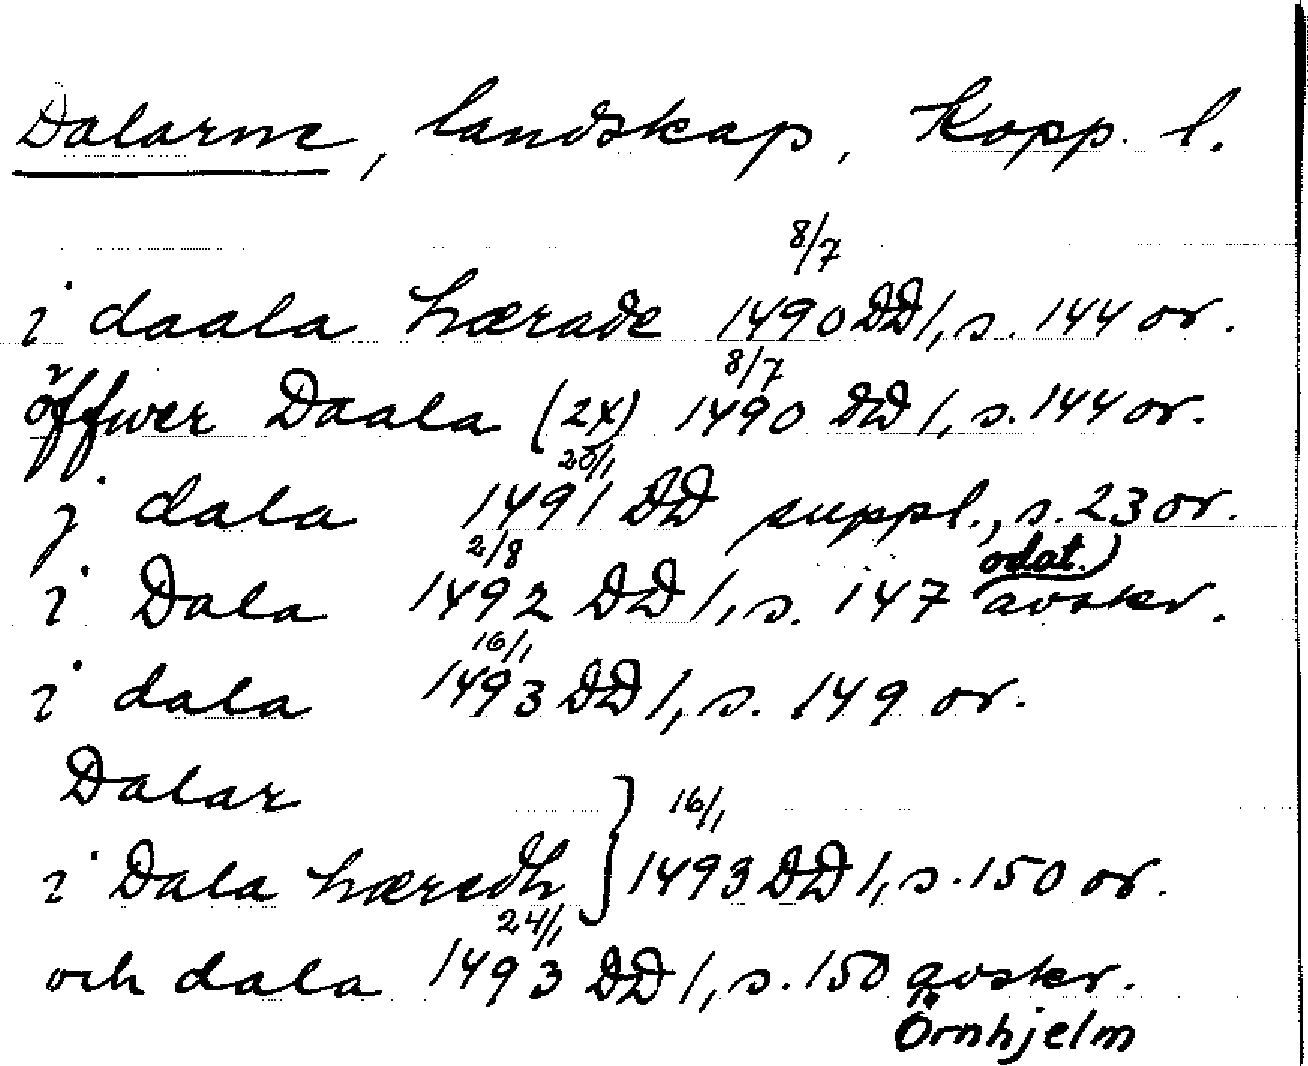 Dalarne, landskap, Kopp. l.
i daala hærade 8/7 1490 DD 1, s. 144 or.
öffwer Daala (2x) 8/7 1490 DD 1, s. 144 or.
j dala 20/1 1491 DD suppl., s. 23 or.
i Dala 2/8 1492 DD 1, s. 147 (odat.) avskr.
i dala 16/1 1493 DD 1, s. 149 or.
Dalar
i Dala hæredh } 16/1 1493 DD 1, s. 150 or.
och dala 24/1 1493 DD 1, s. 150 avskr.
Örnhjelm